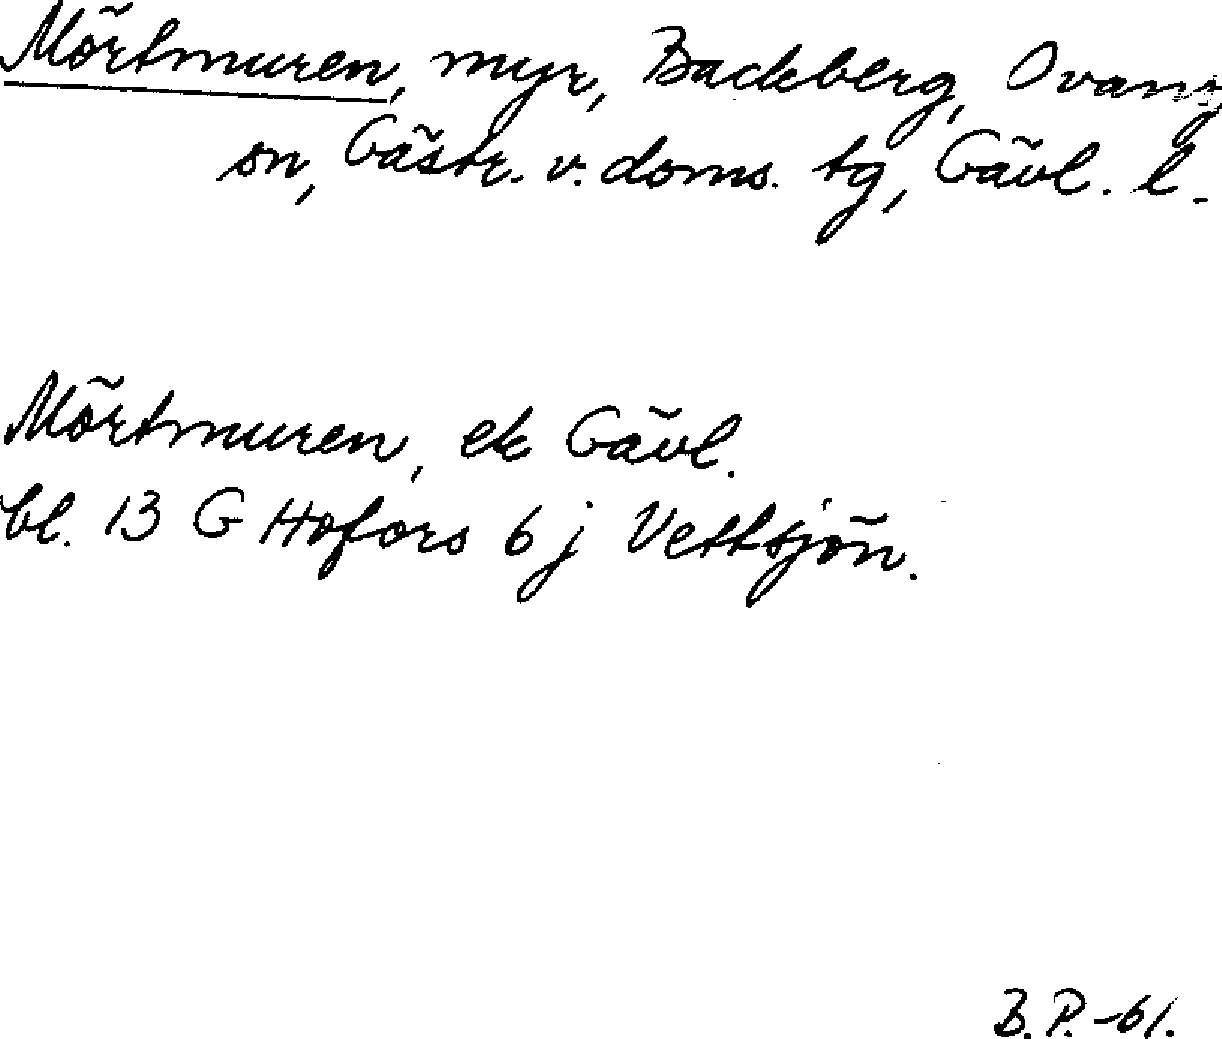 Mörtmuren, myr, Backberg, Ovans.
sn, Gästr. v. doms. tg, Gävl. l.
Mörtmuren, ek Gävl.
bl. 13 G Hofors 6 j Vettsjön.
B. P. -61.